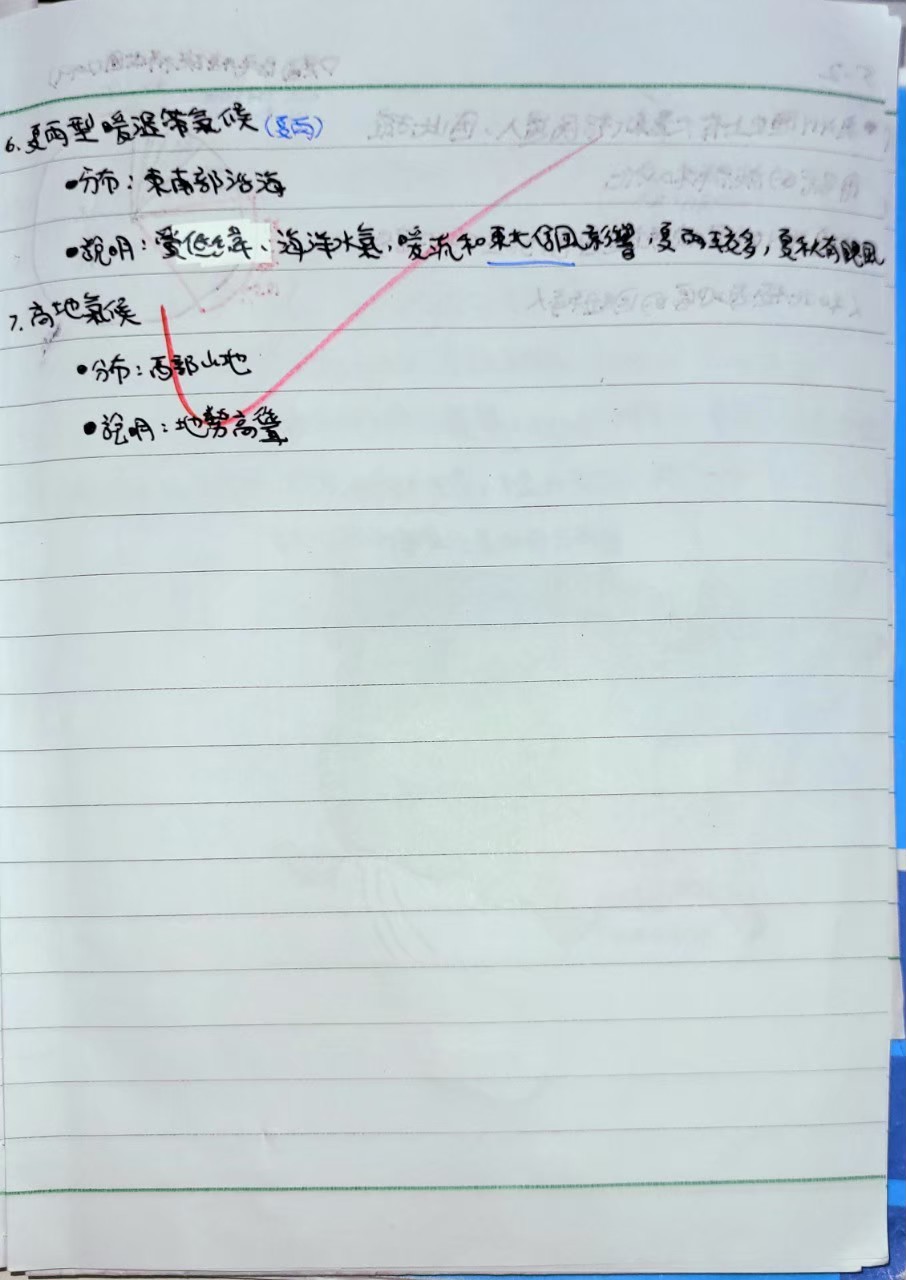 6. 夏雨型暖濕帶氣候(夏雨)
•分布:東南部沿海
•說明:受低緯、海洋水氣,暖流和東北信風影響,夏雨較多,夏秋有颶風
7. 高地氣候
•分布:西部山地
•說明:地勢高聳